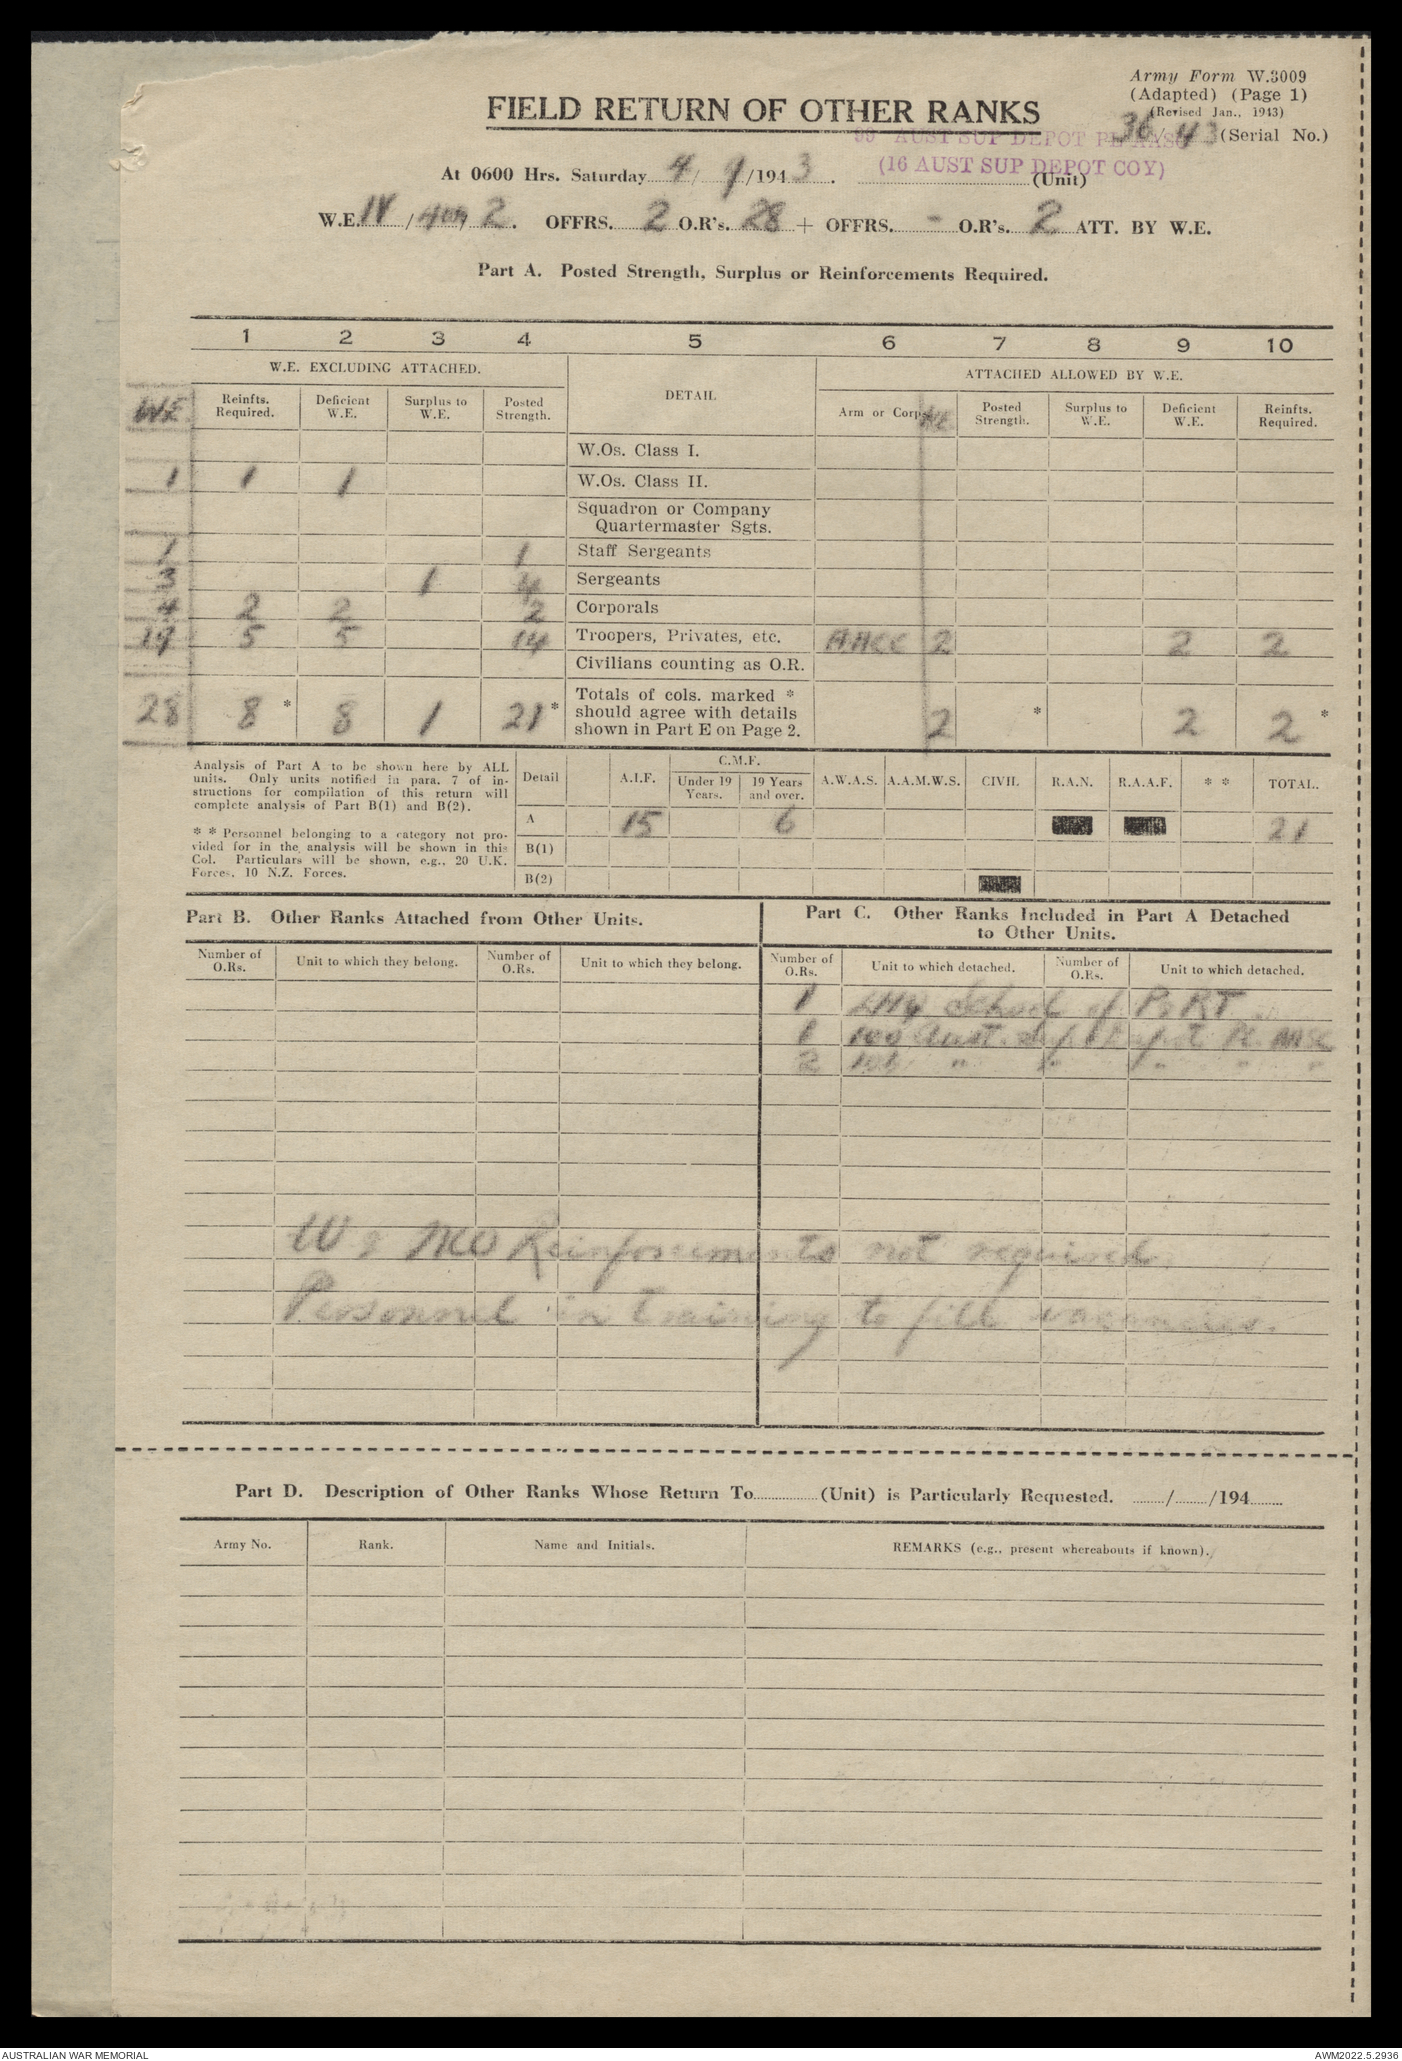 Army Form W.3009
(Adapted) (Page 1)
(Revised Jan., 1943)
FIELD RETURN OF OTHER RANKS
36/43 (Serial No.)
99 AUST SUP DEPOT PL AASC
(16 AUST SUP DEPOT COY)
At 0600 Hrs. Saturday 4/9/1943. (Unit)
W.E. IV/ / 2. OFFRS. 2 O.R's. 28 + OFFRS. - O.R's. 2 ATT. BY W.E.
Part A. Posted Strength, Surplus or Reinforcements Required.
1 2 3 4 5 6 7 8 9 10
W.E. EXCLUDING ATTACHED. DETAIL ATTACHED ALLOWED BY W.E.
WE Reinfts. Required. Deficient W.E. Surplus to W.E. Posted Strength. Arm or Corps WE Posted Strength. Surplus to W.E. Deficient W.E. Reinfts. Required.
W.Os. Class I.
1 1 1 W.Os. Class II.
Squadron or Company
Quartermaster Sgts.
1 1 Staff Sergeants
3 1 4 Sergeants
4 2 2 2 Corporals
19 5 5 14 Troopers, Privates, etc. AACC 2 2 2
Civilians counting as O.R.
Totals of cols. marked *
should agree with details
shown in Part E on Page 2.
28 8 * 8 1 21 * 2 * 2 2 *
Analysis of Part A to be shown here by ALL
units. Only units notified in para. 7 of in-
structions for compilation of this return will
complete analysis of Part B(1) and B(2).
* * Personnel belonging to a category not pro-
vided for in the analysis will be shown in this
Col. Particulars will be shown, e.g., 20 U.K.
Forces, 10 N.Z. Forces.
C.M.F.
Detail A.I.F. Under 19 Years. 19 Years and over. A.W.A.S. A.A.M.W.S. CIVIL R.A.N. R.A.A.F. * * TOTAL.
A 15 6 21
B(1)
B(2)
Part B. Other Ranks Attached from Other Units.
Part C. Other Ranks Included in Part A Detached
to Other Units.
Number of O.Rs. Unit to which they belong. Number of O.Rs. Unit to which they belong. Number of O.Rs. Unit to which detached. Number of O.Rs. Unit to which detached.
1 LHQ School of P & RT
1 100 Aust. Sup Depot Pl. AASC
2 101 " " " " "
W & NCO Reinforcements not required.
Personnel in training to fill vacancies.
Part D. Description of Other Ranks Whose Return To (Unit) is Particularly Requested. / /194
Army No. Rank. Name and Initials. REMARKS (e.g., present whereabouts if known).
AUSTRALIAN WAR MEMORIAL
AWM2022.5.2936